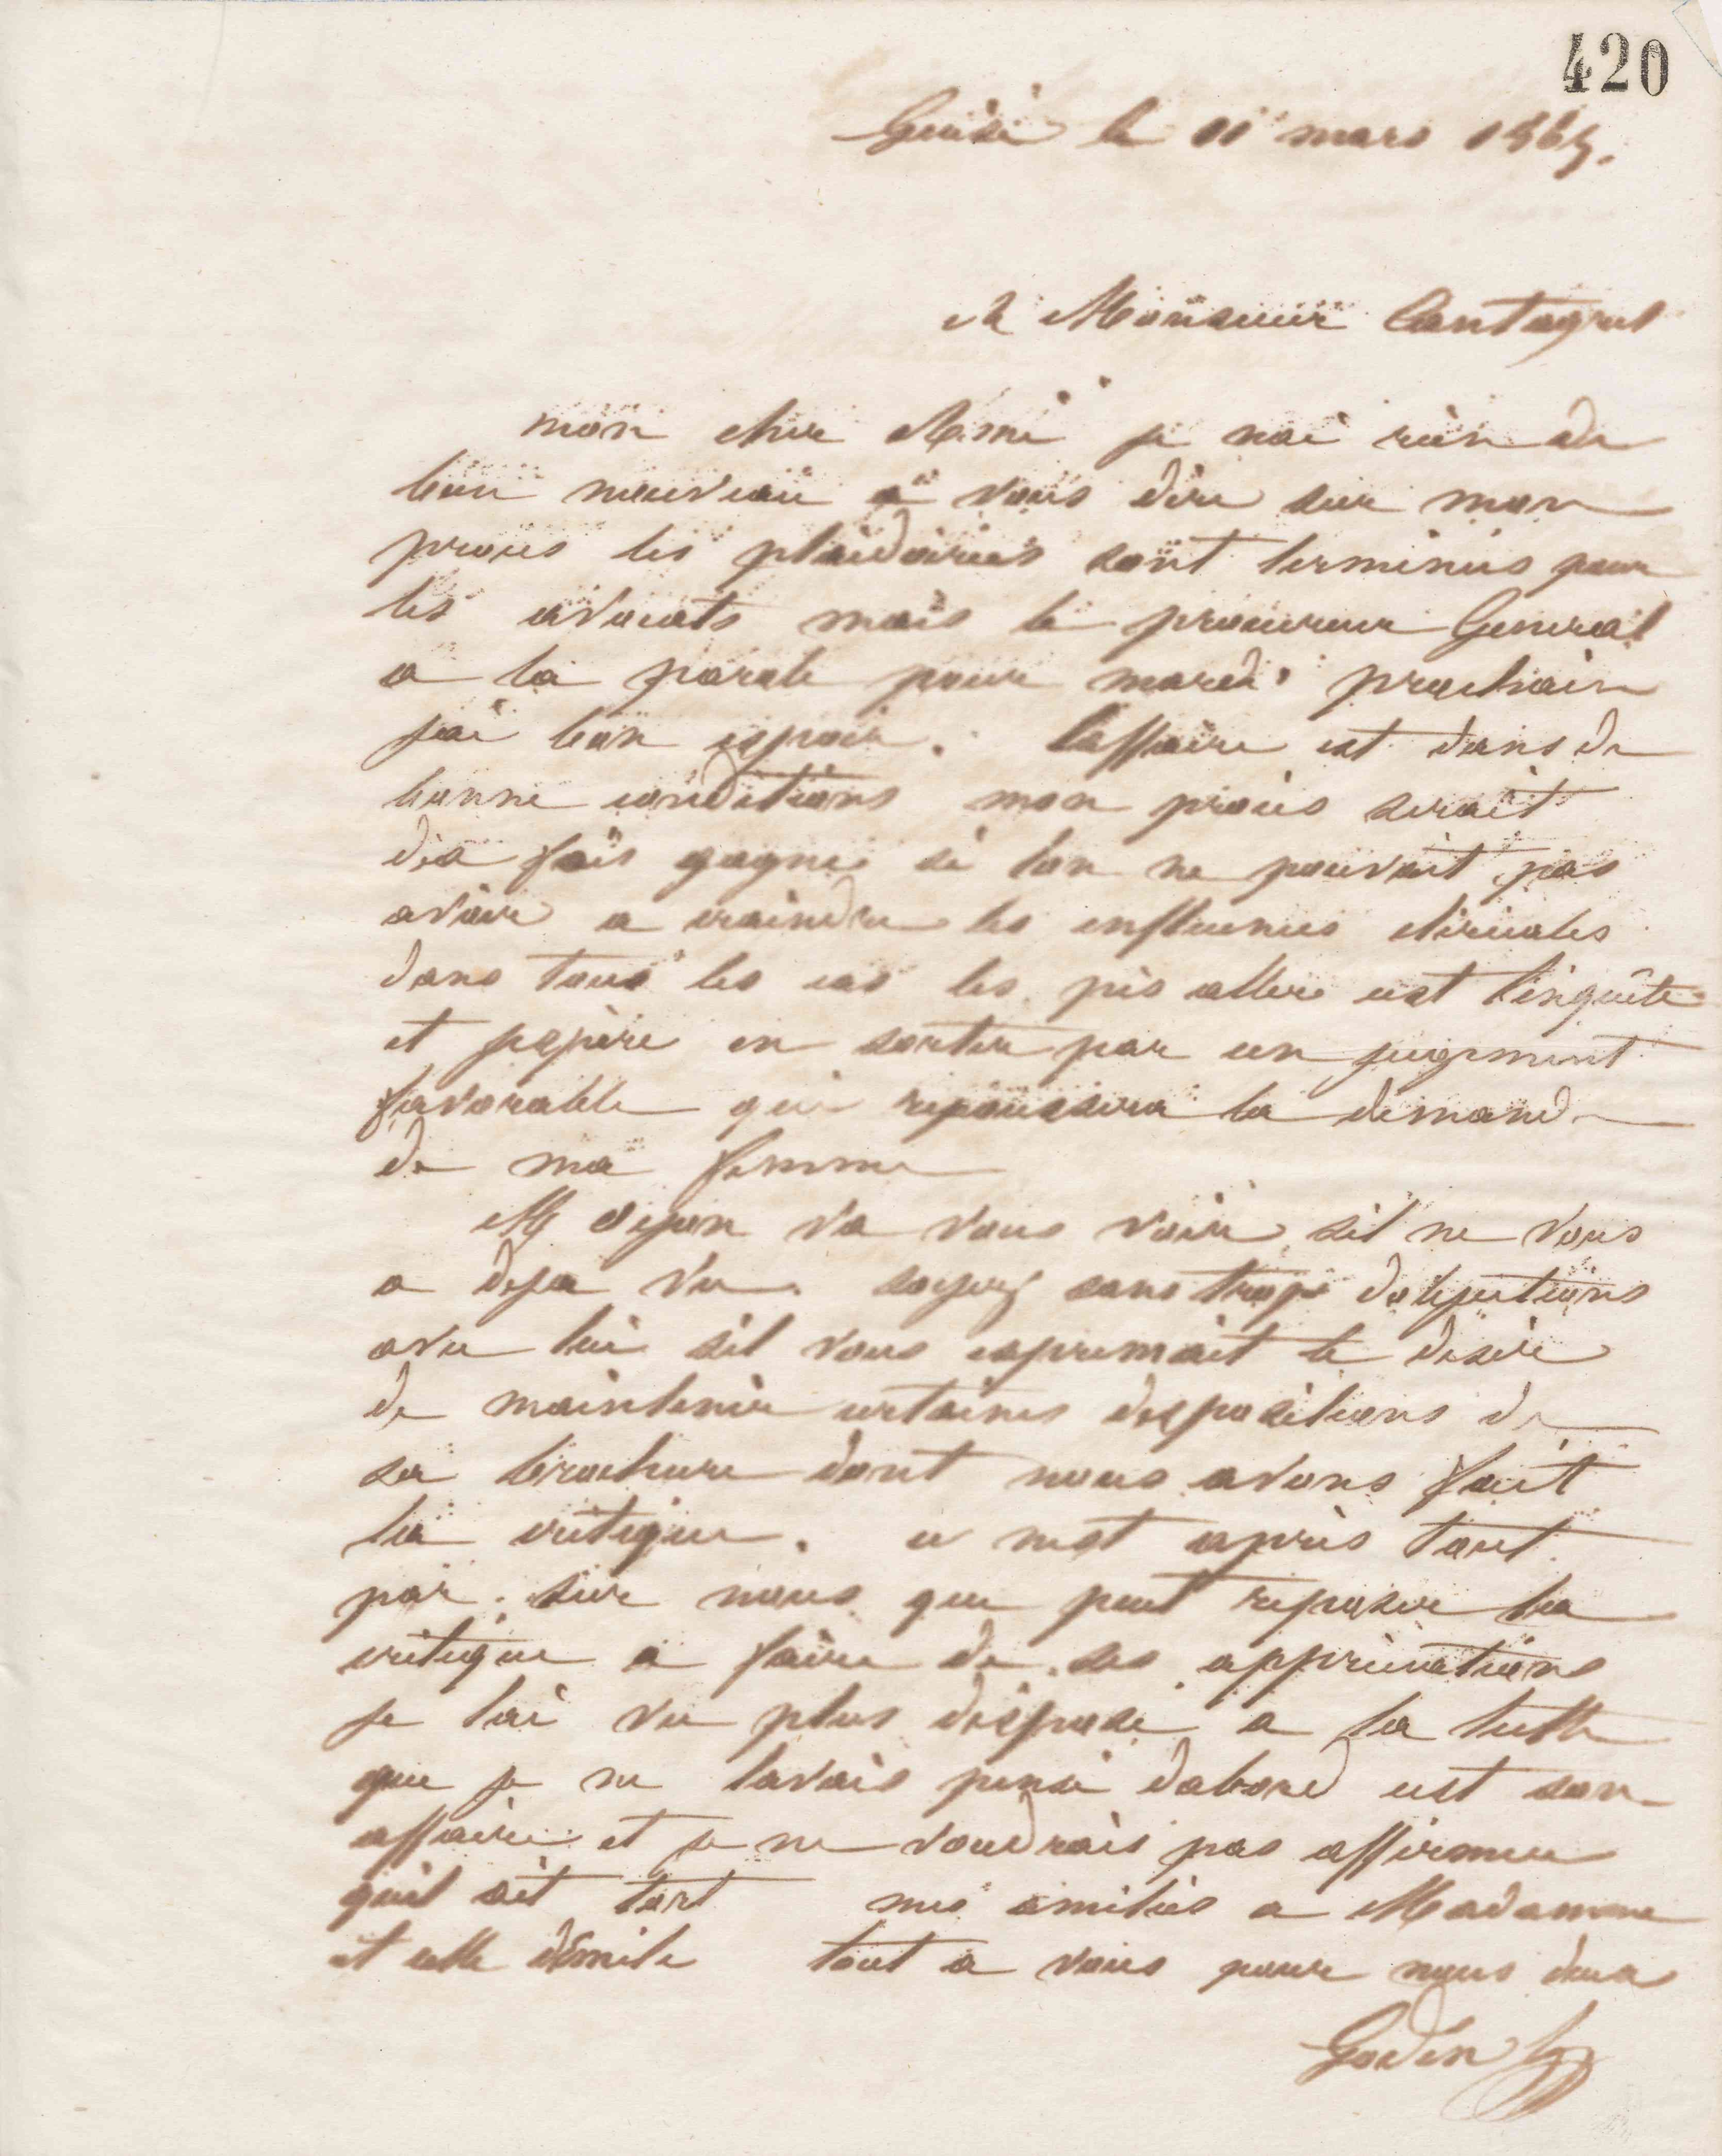 420
Guise le 11 mars 1865.
A Monsieur Cantagrel
mon cher Ami je nai rien de
bien nouveau a vous dire sur mon
procès les plaidoiries sont terminées pour
les avocats mais le procureur General
a la parole pour mardi prochain
jai bon espoir. Laffaire est dans de
bonne conditions mon procès serait
dix fois gagné si lon ne pouvait pas
avoir a craindre les influences cléricales
dans tous les cas les pis aller est l'enquête
et jespère en sortir par un jugement
favorable qui repoussera la demande
de ma femme
M oyon va vous voir sil ne vous
a deja vu. soyez sans trop dobjections
avec lui sil vous exprimait le désir
de maintenir certaines dispositions de
sa brochure dont nous avons fait
la critique. ce nest après tout
par sur nous que peut reposer la
critique a faire de ses appréciations
je lai vu plus disposé a la lutte
que je ne lavais pensé dabord cest son
affaire et je ne voudrais pas affirmer
quil ait tort mes amitiés a Madame
et celle démile tout a vous pour nous deux
Godin